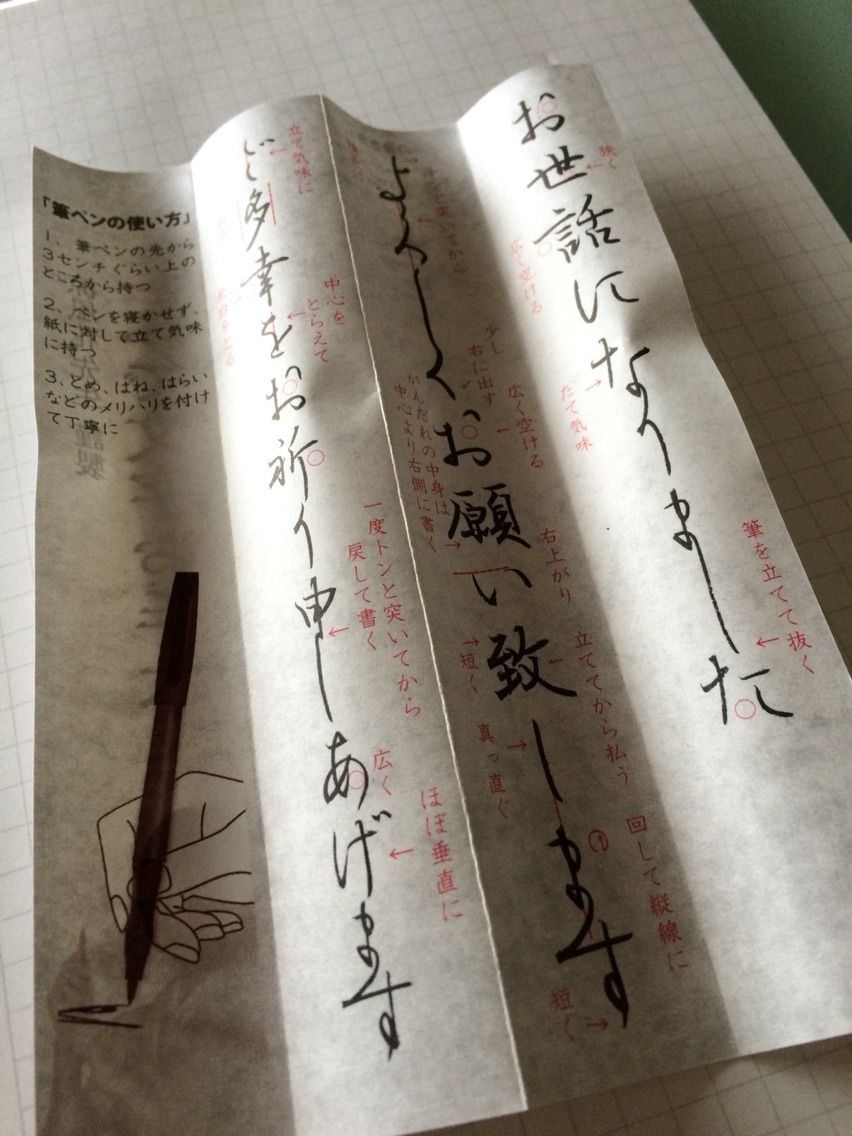 お世話になりました
狭く
広く空ける
たて気味
筆を立てて抜く
よろしくお願い致します
トンと突いてから
少し
右に出す
広く空ける
がんだれの中身は
中心より右側に書く
右上がり
短く
立ててから払う
真っ直ぐ
回して縦線に
短く
ご多幸をお祈り申しあげます
立て気味に
中心を
とらえて
余白をとる
一度トンと突いてから
戻して書く
広く
ほぼ垂直に
「筆ペンの使い方」
1、筆ペンの先から
3センチぐらい上の
ところから持つ
2、ペンを寝かせず、
紙に対して立て気味
に持つ
3、とめ、はね、はらい
などのメリハリを付け
て丁寧に
謹製